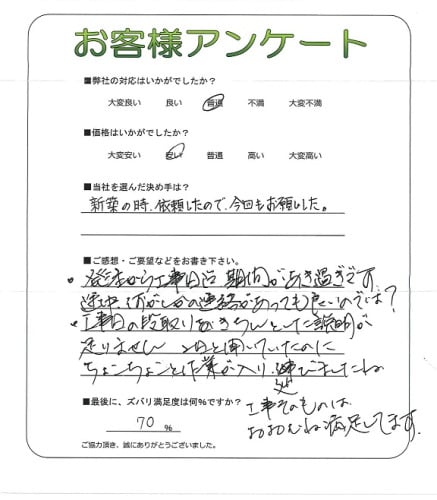 お客様アンケート
■弊社の対応はいかがでしたか？
大変良い 良い 普通 不満 大変不満
■価格はいかがでしたか？
大変安い 安い 普通 高い 大変高い
■当社を選んだ決め手は？
新築の時、依頼したので、今回もお願いした。
■ご感想・ご要望などをお書き下さい。
・発注から工事日迄 期間があき過ぎです
途中 何がしかの連絡があっても良いのでは？
・工事日の段取り きちんとした説明が
足りません 2日と聞いていたのに
ちょんちょんと作業が入り、延びましたね
工事そのものは
おおむね満足してます。
■最後に、ズバリ満足度は何％ですか？
70 %
ご協力頂き、誠にありがとうございました。